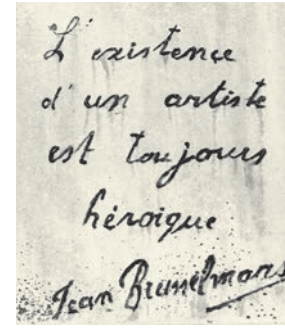 L'existence
d'un artiste
est toujours
héroique
Jean Brusselmans